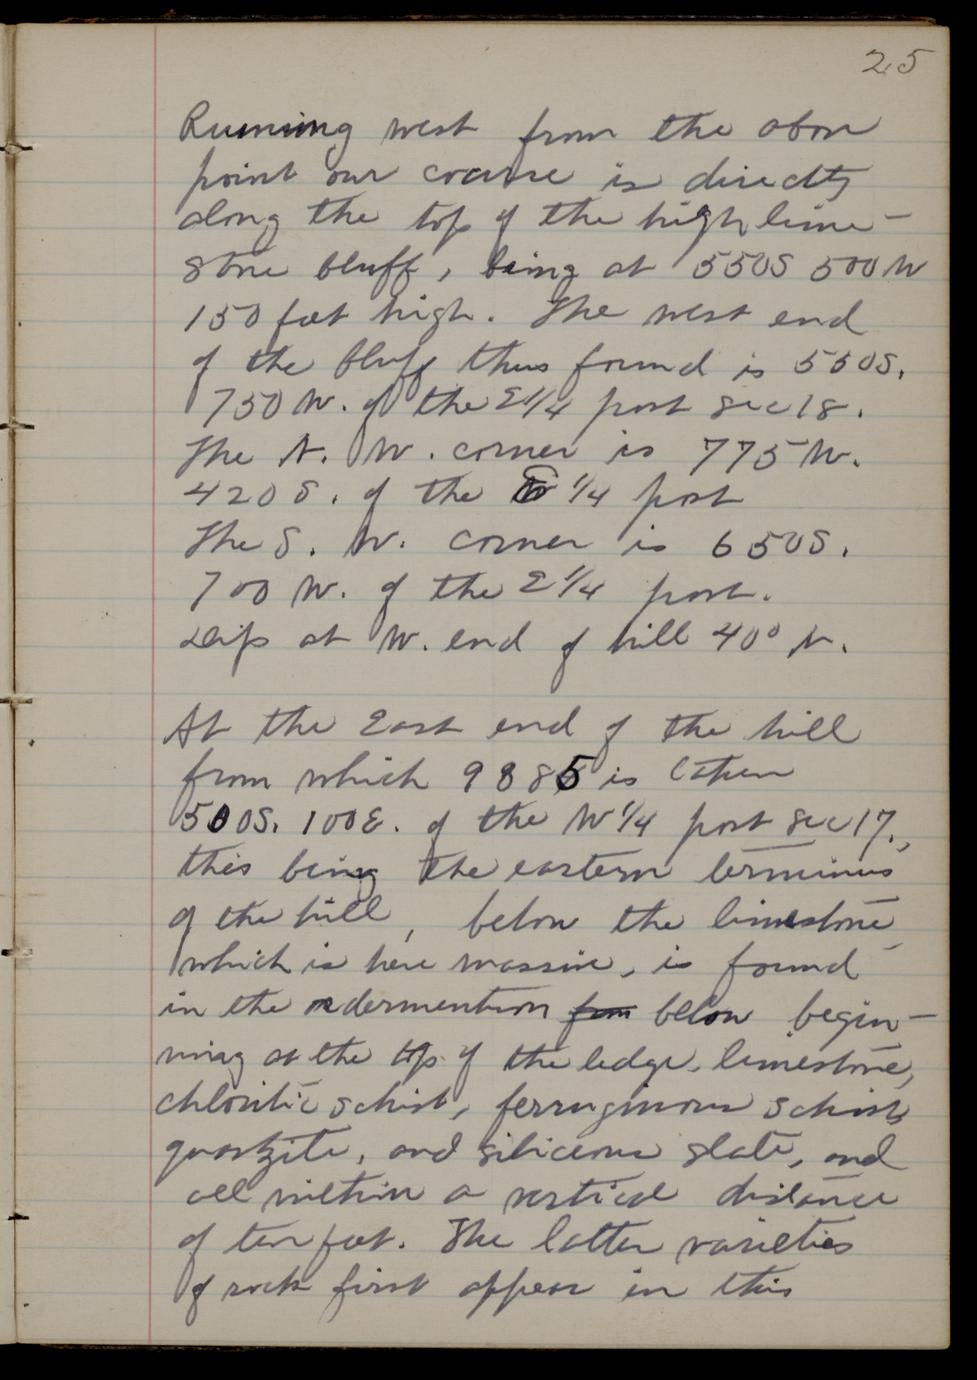 25
Running west from the above
point our course is directly
along the top of the high lime-
stone bluff, being at 550S 500W
150 feet high. The west end
of the bluff thus found is 550S.
750 W. of the E1/4 post sec 18.
The N. W. corner is 775 W.
420 S. of the E 1/4 post
The S. W. corner is 650S.
700 W. of the E 1/4 post.
Dip at W. end of hill 40° N.
At the East end of the hill
from which 9885 is taken
500S. 100E. of the W 1/4 post sec 17,
this being the eastern terminus
of the hill, below the limestone
which is here massive, is found
in the order mention from below begin-
ning at the top of the ledge, limestone,
chloritic schist, ferruginous schist
quartzite, and siliceous slate, and
all within a vertical distance
of ten feet. The latter varieties
of rock first appear in this